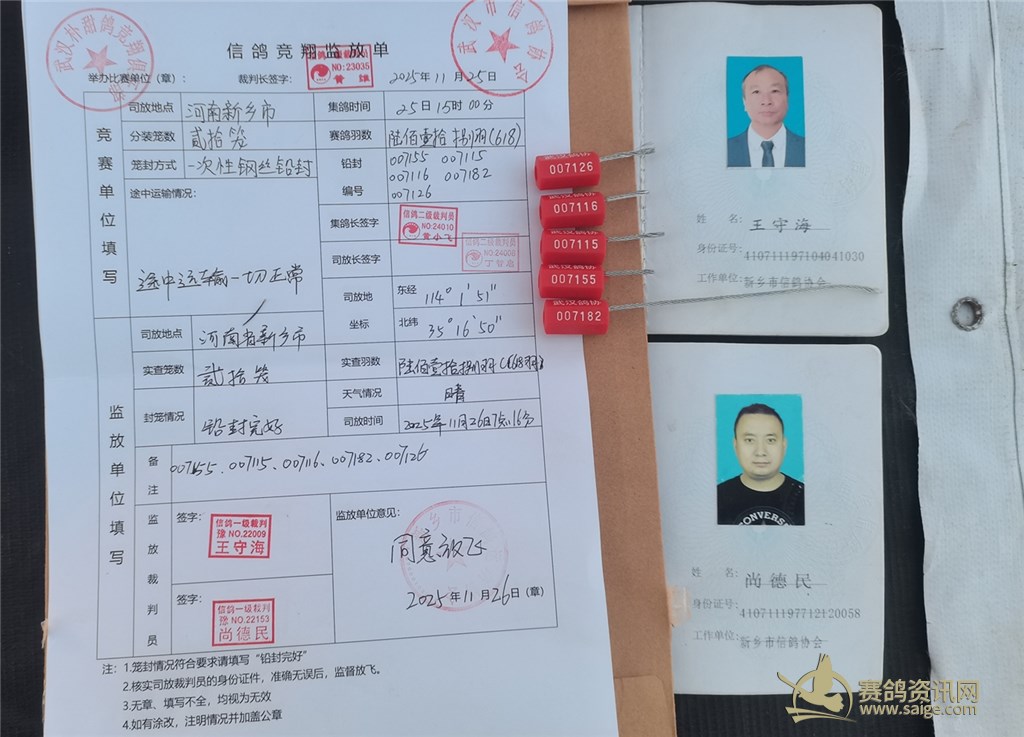 信鸽竞翔监放单
举办比赛单位（章）： 裁判长签字： NO:23035 2025年11月25日
竞赛单位填写
司放地点 河南新乡市 集鸽时间 25日15时00分
分装笼数 贰拾笼 赛鸽羽数 陆佰壹拾捌羽(618)
笼封方式 一次性钢丝铅封 铅封编号 007155 007115
007116 007182
007126
途中运输情况： 途中运输一切正常
集鸽长签字 信鸽二级裁判员
NO:24010
黄小飞
司放长签字 信鸽二级裁判员
NO:24008
司放地坐标 东经 114°1′51″
北纬 35°16′50″
监放单位填写
司放地点 河南省新乡市
实查笼数 贰拾笼 实查羽数 陆佰壹拾捌羽
天气情况 晴
封笼情况 铅封完好 司放时间 2025年11月26日7点16分
备注 007155、007115、007116、007182、007126
监放裁判员
签字： 信鸽一级裁判
豫NO.22009
王守海
签字： 信鸽一级裁判
豫NO.22153
尚德民
监放单位意见：
同意放飞
2025年11月26日（章）
注：1.笼封情况符合要求请填写“铅封完好”
2.核实司放裁判员的身份证件，准确无误后，监督放飞。
3.无章、填写不全，均视为无效
4.如有涂改，注明情况并加盖公章
武汉市信鸽协会
007126
007116
007115
007155
007182
姓 名：王守海
身份证号：410711197104041030
工作单位：新乡市信鸽协会
姓 名：尚德民
身份证号：410711197712120058
工作单位：新乡市信鸽协会
CONVERSE
赛鸽资讯网
www.saige.com